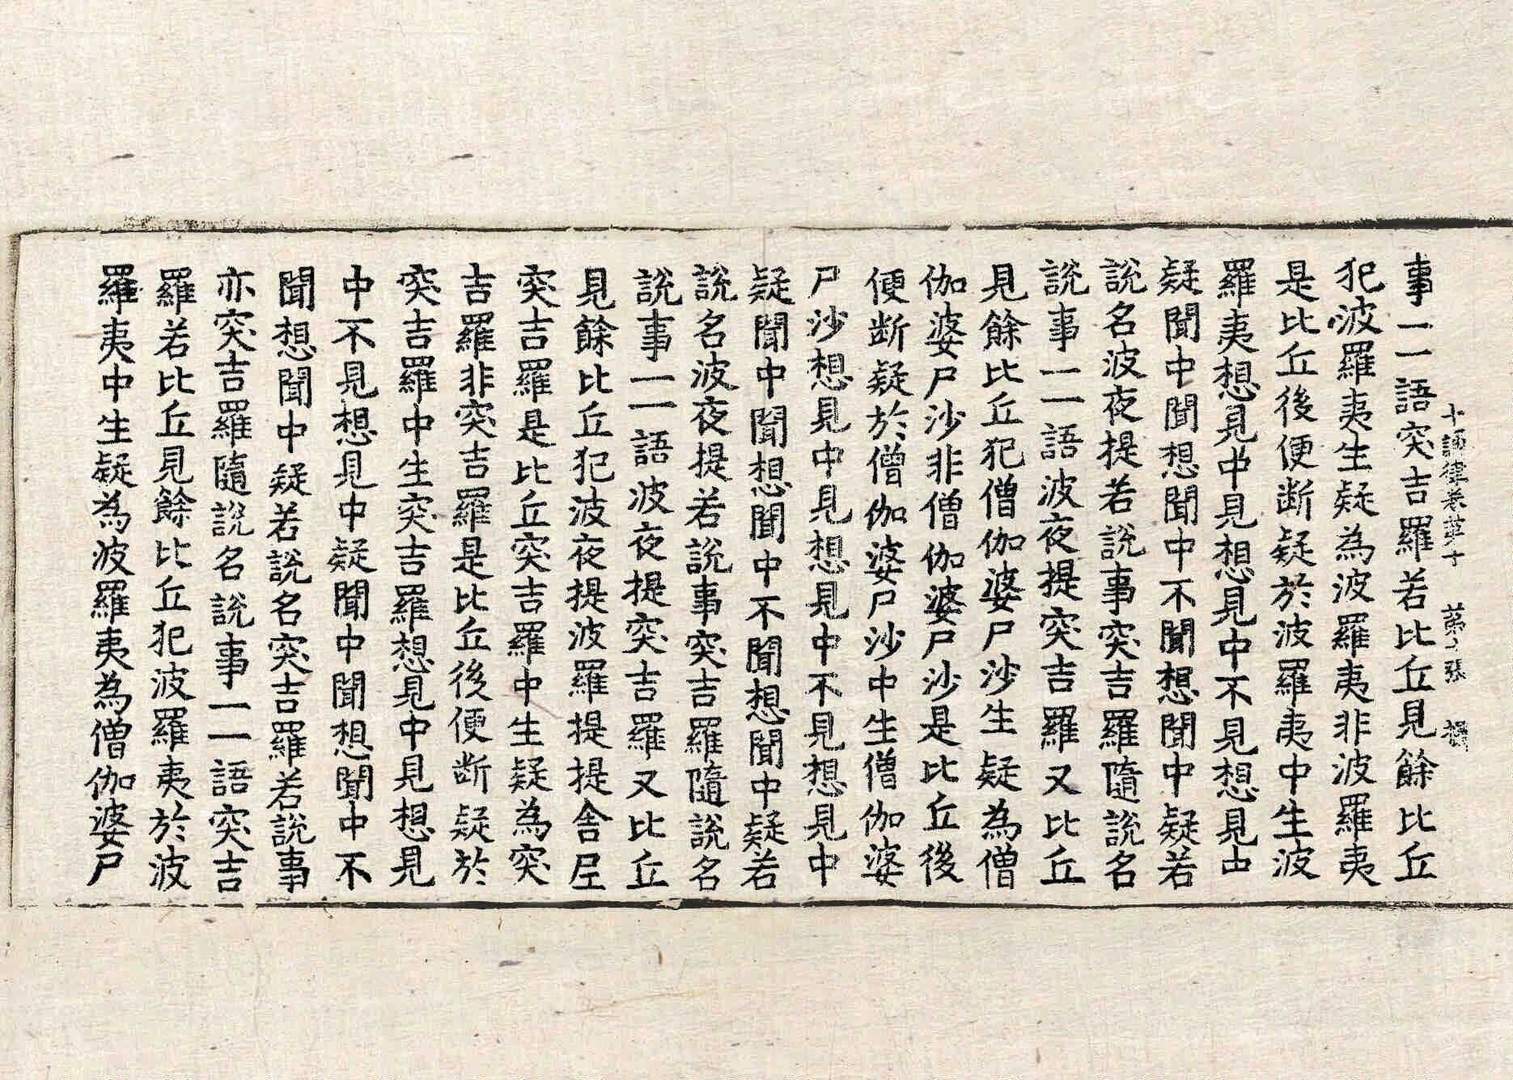 事一一語突吉羅若比丘見餘比丘
十誦律卷第十 第 張
犯波羅夷生疑為波羅夷非波羅夷
是比丘後便断疑於波羅夷中生波
羅夷想見中見想見中不見想見中
疑聞中聞想聞中不聞想聞中疑若
說名波夜提若說事突吉羅隨說名
說事一一語波夜提突吉羅又比丘
見餘比丘犯僧伽婆尸沙生疑為僧
伽婆尸沙非僧伽婆尸沙是比丘後
便断疑於僧伽婆尸沙中生僧伽婆
尸沙想見中見想見中不見想見中
疑聞中聞想聞中不聞想聞中疑若
說名波夜提若說事突吉羅隨說名
說事一一語波夜提突吉羅又比丘
見餘比丘犯波夜提波羅提提舍𡰱
突吉羅是比丘突吉羅中生疑為突
吉羅非突吉羅是比丘後便断疑於
突吉羅中生突吉羅想見中見想見
中不見想見中疑聞中聞想聞中不
聞想聞中疑若說名突吉羅若說事
亦突吉羅隨說名說事一一語突吉
羅若比丘見餘比丘犯波羅夷於波
羅夷中生疑為波羅夷為僧伽婆尸